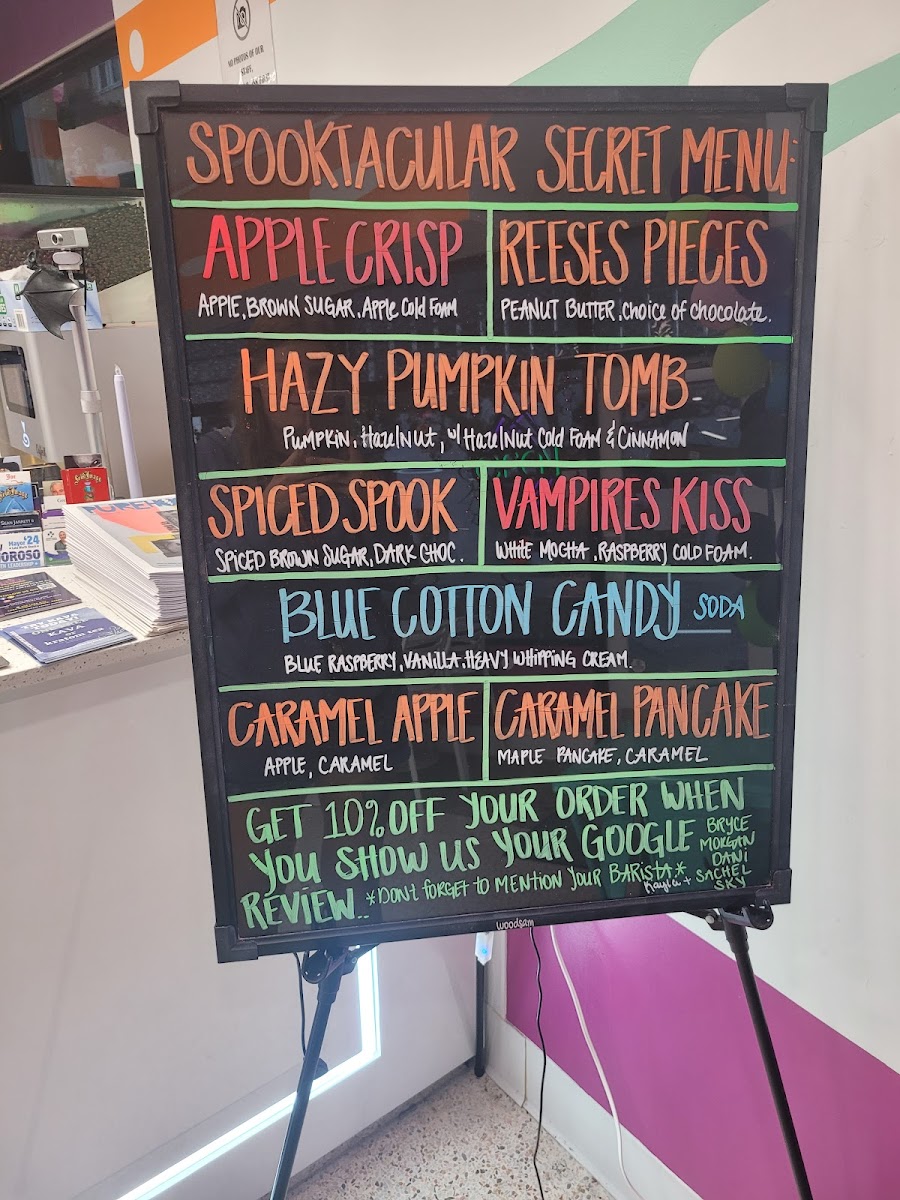 NO PHOTOS OF OUR
STAFF.
SPOOKTACULAR SECRET MENU:
APPLE CRISP
APPLE, BROWN SUGAR, Apple Cold Foam
REESES PIECES
PEANUT BUTTER, choice of chocolate.
HAZY PUMPKIN TOMB
PUMPKIN, HazelNut, w/ HazelNut Cold Foam & CINNAMON
SPICED SPOOK
SPICED BROWN SUGAR, DARK CHOC.
VAMPIRES KISS
WHITE MOCHA, RASPBERRY COLD FOAM.
BLUE COTTON CANDY SODA
BLUE RASPBERRY, VANILLA, HEAVY WHIPPING CREAM.
CARAMEL APPLE
APPLE, CARAMEL
CARAMEL PANCAKE
MAPLE PANCAKE, CARAMEL
GET 10% OFF YOUR ORDER WHEN
YOU SHOW US YOUR GOOGLE
REVIEW.. *DON't FORGET TO MENTION YOUR BARISTA*
BRYCE
MORGAN
DANI
Kayla + SACHEL
SKY
woodsam
Mayor '24
OROSO
KAVA
kratom tea